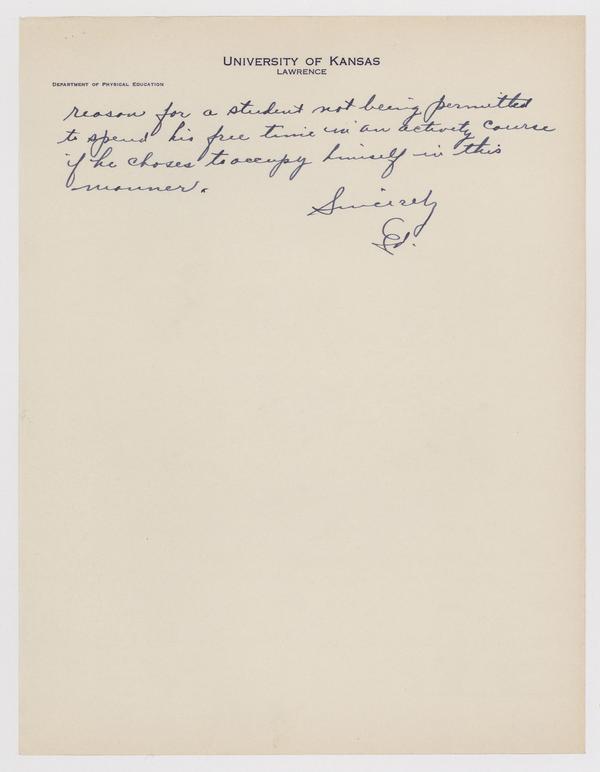 University of Kansas
Lawrence
Department of Physical Education
reason for a student not being permitted
to spend his free time in an activity course
if he choses to occupy himself in this
manner.
Sincerely
Ed.